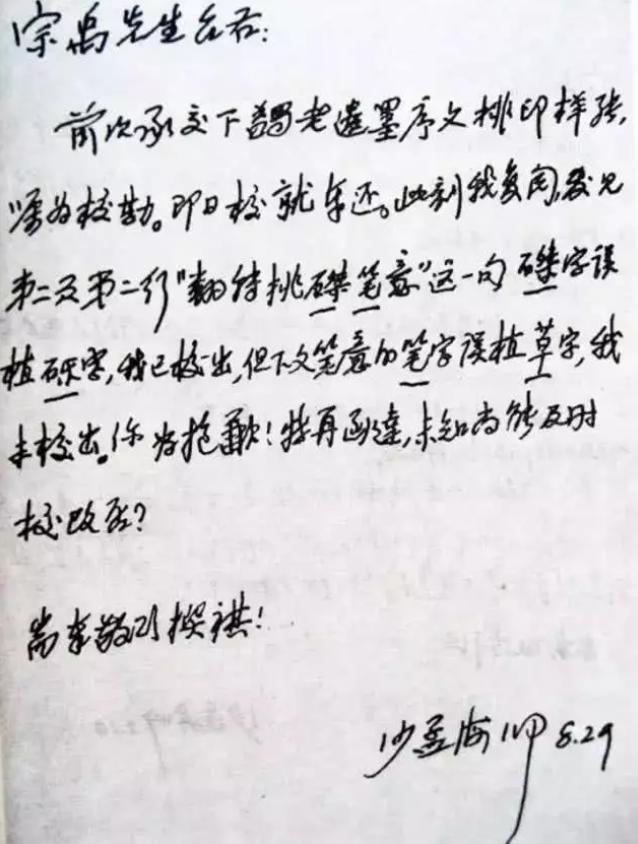 宗禹先生台右：
前次承交下蠲老遗墨序文排印样张，
嘱为校勘。即日校就奉还。此刻我复阅，发见
第二页第二行“翻转挑磔笔意”这一句磔字误
植砾字，我已校出，但下文笔意的笔字误植草字，我
未校出。 为抱歉！特再函达，未知尚能及时
校改否？
耑奉敬颂撰祺！
沙孟海 8.29